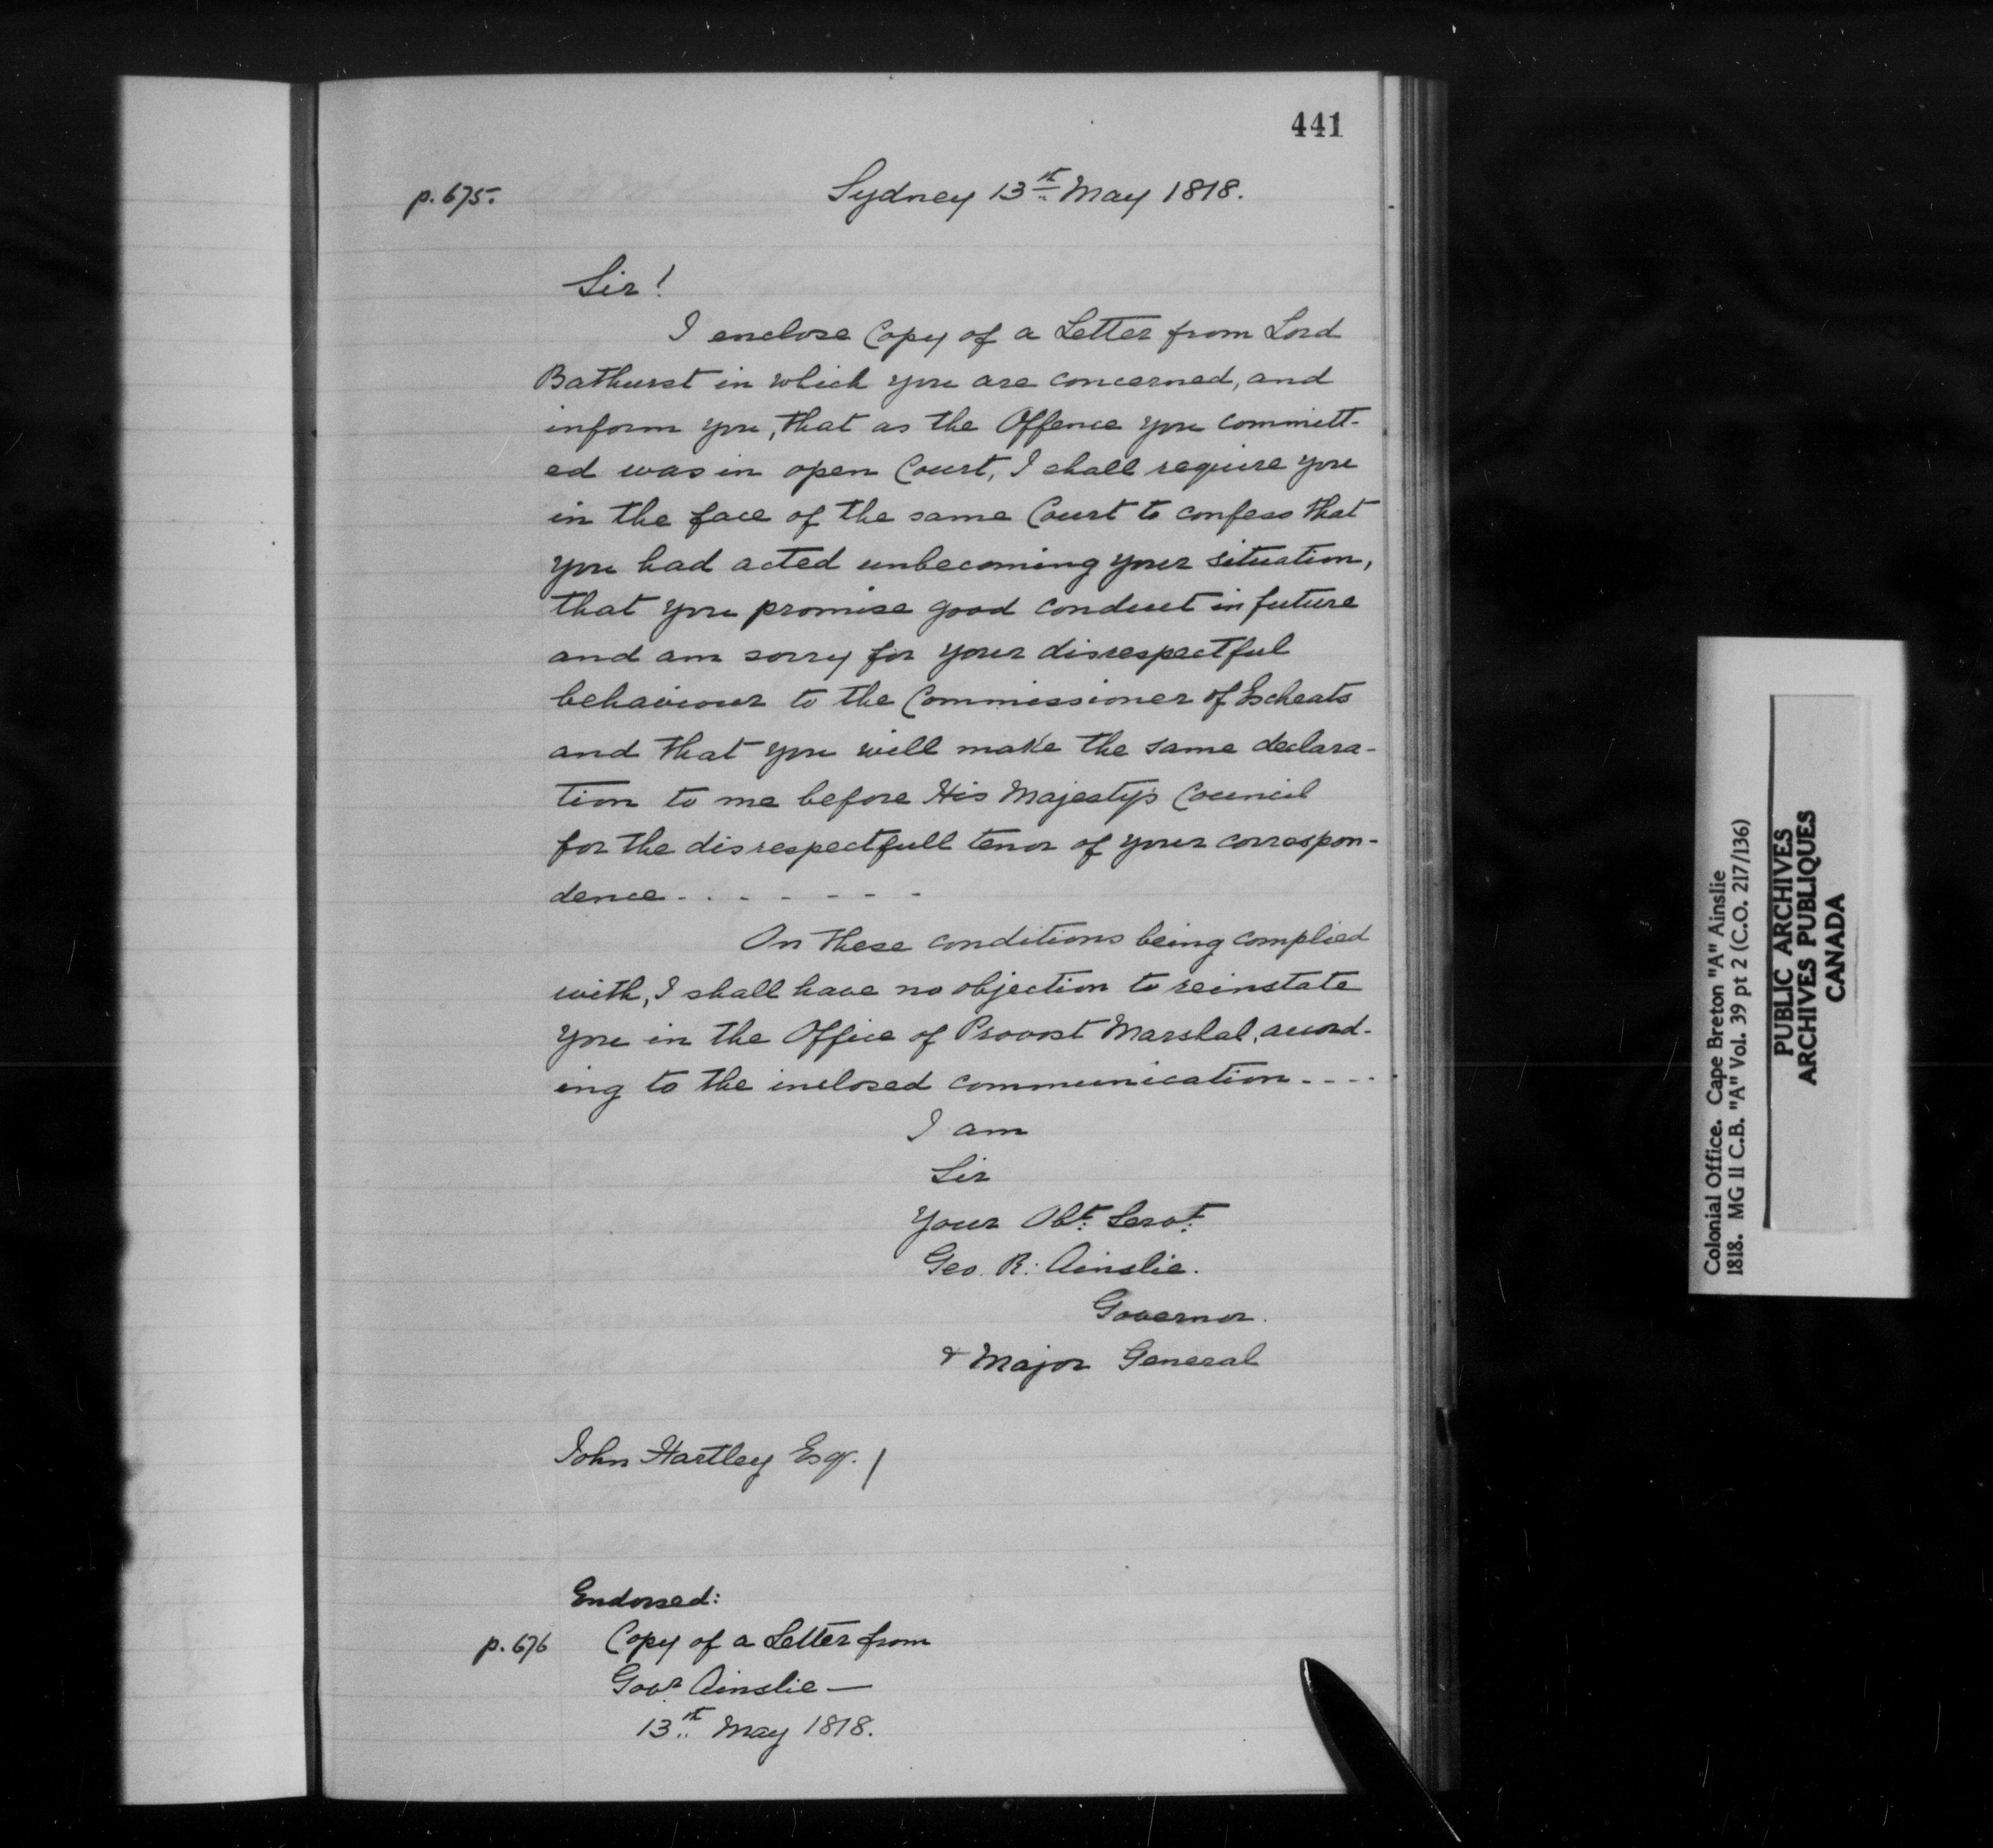 441
p. 675.
Sydney 13th May 1818.
Sir!
I enclose Copy of a Letter from Lord
Bathurst in which you are concerned, and
inform you, that as the Offence you committ-
ed was in open Court, I shall require you
in the face of the same Court to confess that
you had acted unbecoming your situation,
that you promise good conduct in future
and am sorry for your disrespectful
behaviour to the Commissioner of Escheats
and that you will make the same declara-
tion to me before His Majesty's Council
for the disrespectfull tenor of your correspon-
dence - - - - - - -
On these conditions being complied
with, I shall have no objection to reinstate
you in the Office of Provost Marshal, accord-
ing to the inclosed communication - - - -
I am
Sir
Your Obt. Servt.
Geo. R: Ainslie.
Governor.
& Major General
John Hartley Esqr. /
Endorsed:
p. 676 Copy of a Letter from
Govr Ainslie —
13th May 1818.
Colonial Office. Cape Breton "A" Ainslie
1818. MG 11 C.B. "A" Vol. 39 pt 2 (C.O. 217/136)
PUBLIC ARCHIVES
ARCHIVES PUBLIQUES
CANADA